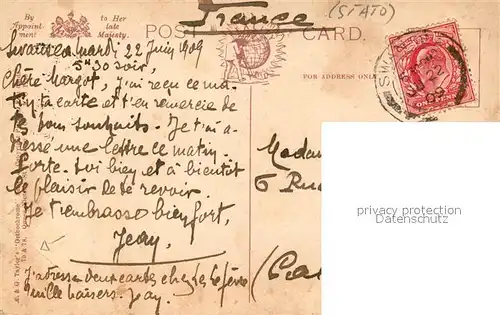 France
(STATO)
By Appoint-ment
to Her late Majesty.
POST CARD.
FOR ADDRESS ONLY
Swansea Mardi 22 Juin 1909
5h30 soir,
Chère Margot, J'ai reçu ce ma-
tin ta carte et t'en remercie de
tes bons souhaits. Je t'ai a-
dressé une lettre ce matin.
Porte-toi bien et à bientôt
le plaisir de te revoir
Je t'embrasse bien fort,
Jean,
J'adresse deux cartes chez les Lefèvre
mille baisers. Jean.
Madam
6 Rue
privacy protection
Datenschutz